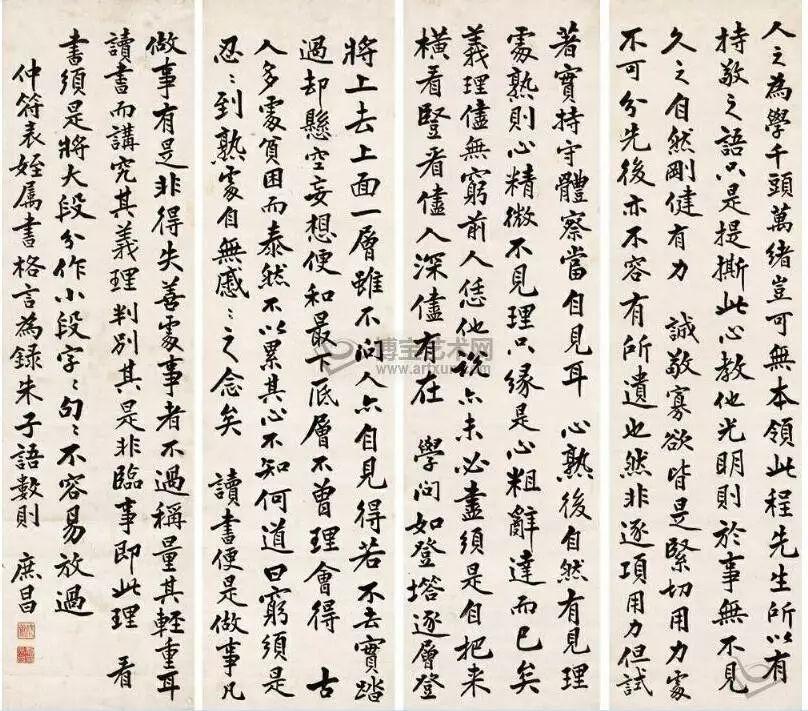 人之為學千頭萬緒豈可無本領此程先生所以有
持敬之語只是提撕此心教他光明則於事無不見
久之自然剛健有力 誠敬寡欲皆是緊切用力處
不可分先後亦不容有所遺也然非逐項用力但試
著實持守體察當自見耳 心熟後自然有見理
處熟則心精微不見理只緣是心粗辭達而已矣
義理儘無窮前人恁他說亦未必盡須是自把来
橫看豎看儘入深儘有在 學問如登塔逐層登
將上去上面一層雖不問人亦自見得若不去實踏
過却懸空妄想便和最下底層不曾理會得 古
人多處貧困而泰然不以累其心不知何道曰窮須是
忍忍到熟處自無慼慼之念矣 讀書便是做事凡
做事有是非得失善處事者不過稱量其輕重耳
讀書而講究其義理判別其是非臨事即此理 看
書須是將大段分作小段字〻句〻不容易放過
仲符表姪屬書格言為錄朱子語數則 庶昌
博宝艺术网
www.artxun.com